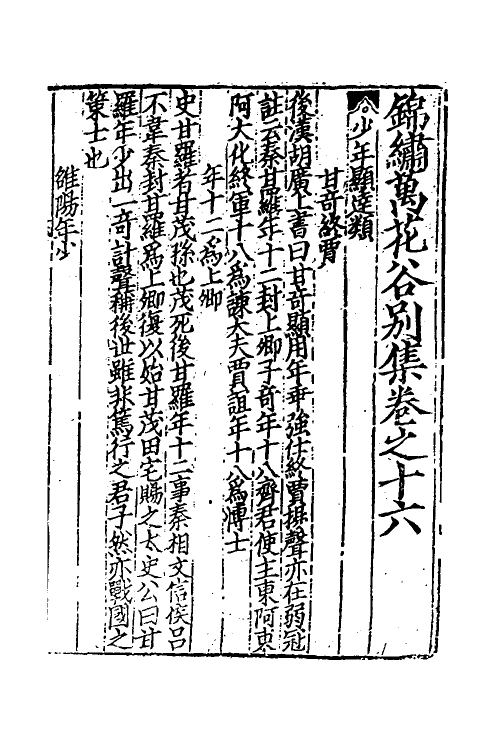 錦繡萬花谷别集卷之十六
少年顯達類
甘奇終賈
後漢胡廣上書曰甘奇顯用年乖強仕終賈揚聲亦在弱冠
註云秦甘羅年十二封上卿子奇年十八齊君使主東阿東
阿大化終軍十八爲諫大夫賈誼年十八爲博士
年十二爲上卿
史甘羅者甘茂孫也茂死後甘羅年十二事秦相文信侯吕
不韋秦封甘羅爲上卿復以始甘茂田宅賜之太史公曰甘
羅年少出一奇計聲稱後世雖非篤行之君子然亦戰國之
策士也
雒陽年少